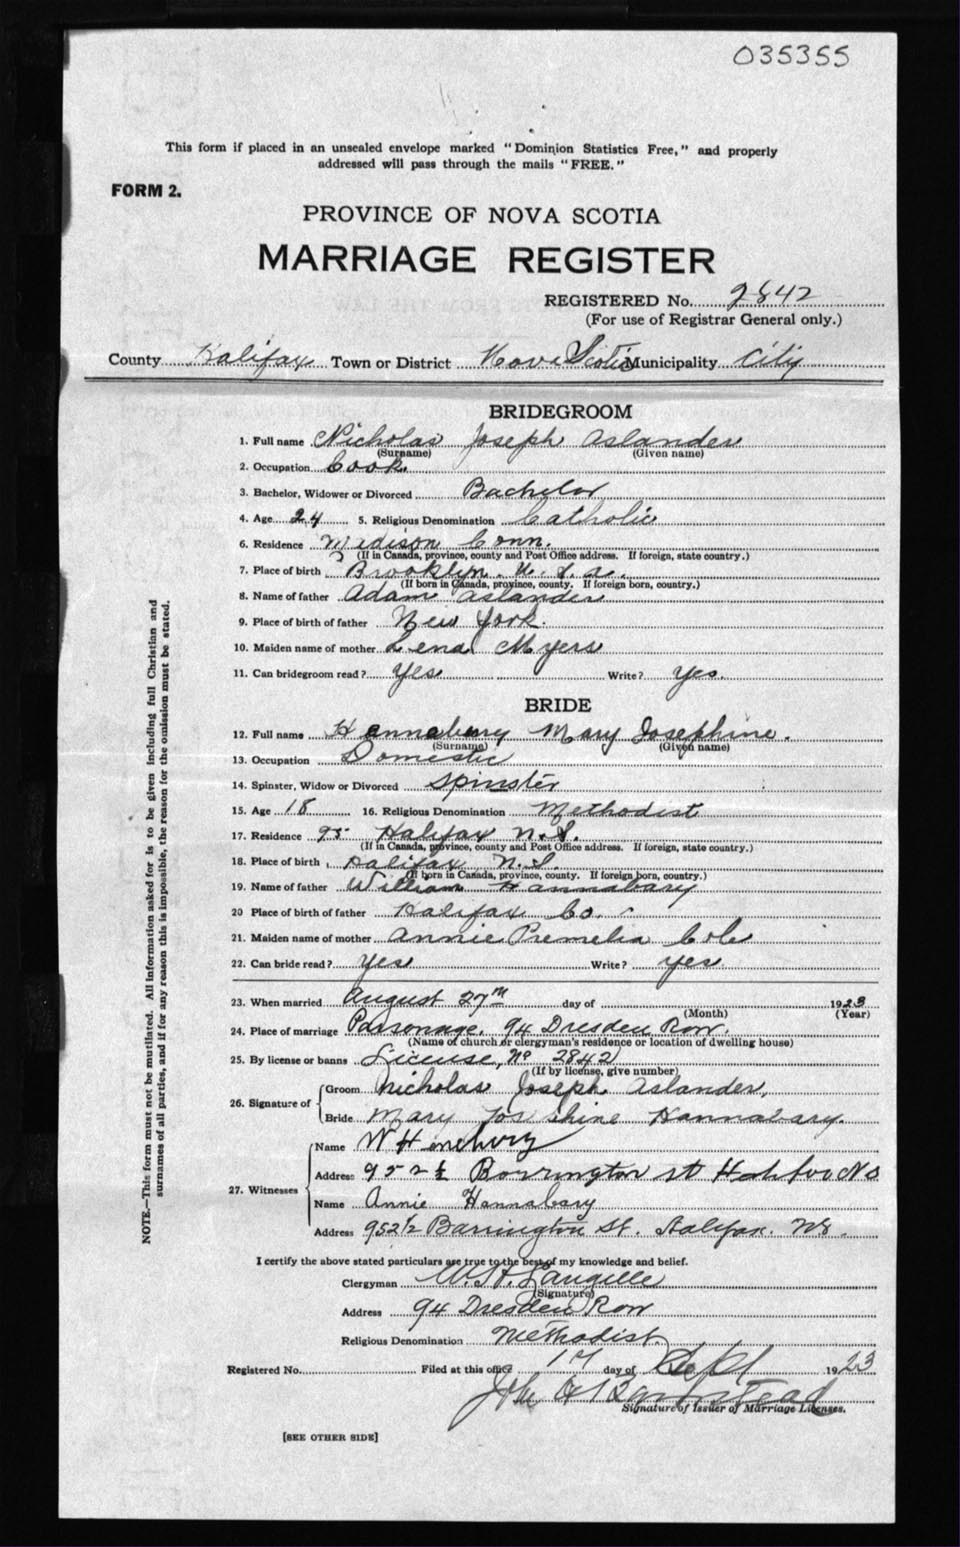 035355
This form if placed in an unsealed envelope marked "Dominion Statistics Free," and properly
addressed will pass through the mails "FREE."
FORM 2.
PROVINCE OF NOVA SCOTIA
MARRIAGE REGISTER
REGISTERED No. 2842
(For use of Registrar General only.)
County Halifax Town or District Nova Scotia Municipality City
BRIDEGROOM
1. Full name Nicholas Joseph Aslander
(Surname) (Given name)
2. Occupation Cook
3. Bachelor, Widower or Divorced Bachelor
4. Age 24 5. Religious Denomination Catholic
6. Residence Madison Conn.
(If in Canada, province, county and Post Office address. If foreign, state country.)
7. Place of birth Brooklyn. U. S. a.
(If born in Canada, province, county. If foreign born, country.)
8. Name of father Adam Aslander
9. Place of birth of father New York.
10. Maiden name of mother Lena Myers
11. Can bridegroom read? Yes Write? Yes.
BRIDE
12. Full name Hannabery Mary Josephine.
(Surname) (Given name)
13. Occupation Domestic
14. Spinster, Widow or Divorced Spinster
15. Age 18 16. Religious Denomination Methodist
17. Residence 95 Halifax N.S.
(If in Canada, province, county and Post Office address. If foreign, state country)
18. Place of birth Halifax N.S.
(If born in Canada, province, county. If foreign born, country.)
19. Name of father William Hannabary
20 Place of birth of father Halifax Co.
21. Maiden name of mother Annie Cole
22. Can bride read? Yes Write? yes
23. When married August 27th day of 1923
(Month) (Year)
24. Place of marriage Parsonage. 94 Dresden Row.
(Name of church or clergyman's residence or location of dwelling house)
25. By license or banns License, No 2842
(If by license, give number)
26. Signature of Groom Nicholas Joseph Aslander,
Bride Mary Josephine Hannabary.
27. Witnesses Name W
Address 952½ Barrington St Halifax NS
Name Annie Hannabary
Address 952½ Barrington St. Halifax. NS.
I certify the above stated particulars are true to the best of my knowledge and belief.
Clergyman W. H. Langille
(Signature)
Address 94 Dresden Row
Religious Denomination Methodist.
Registered No. Filed at this office 17 day of Sept 1923
John A Barnstead
Signature of Issuer of Marriage Licenses.
[SEE OTHER SIDE]
NOTE.—This form must not be mutilated. All information asked for is to be given including full Christian and
surnames of all parties, and if for any reason this is impossible, the reason for the omission must be stated.